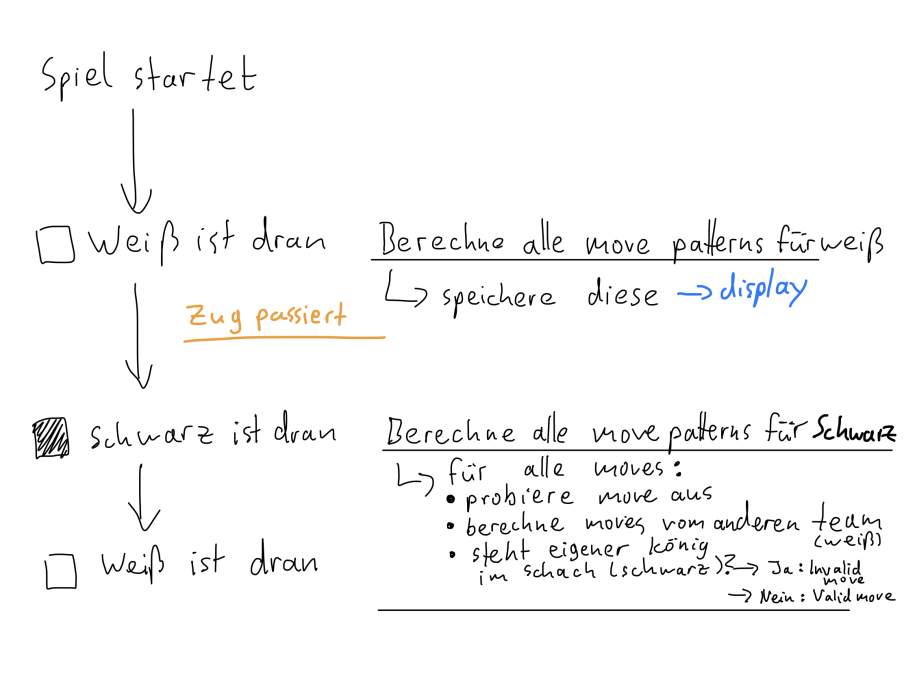 Spiel startet
Weiß ist dran
Berechne alle move patterns für weiß
speichere diese → display
Zug passiert
schwarz ist dran
Berechne alle move patterns für Schwarz
für alle moves:
• probiere move aus
• berechne moves vom anderen team
(weiß)
• steht eigener könig
im schach (schwarz)? → Ja: Invalid
move
→ Nein: Valid move
Weiß ist dran